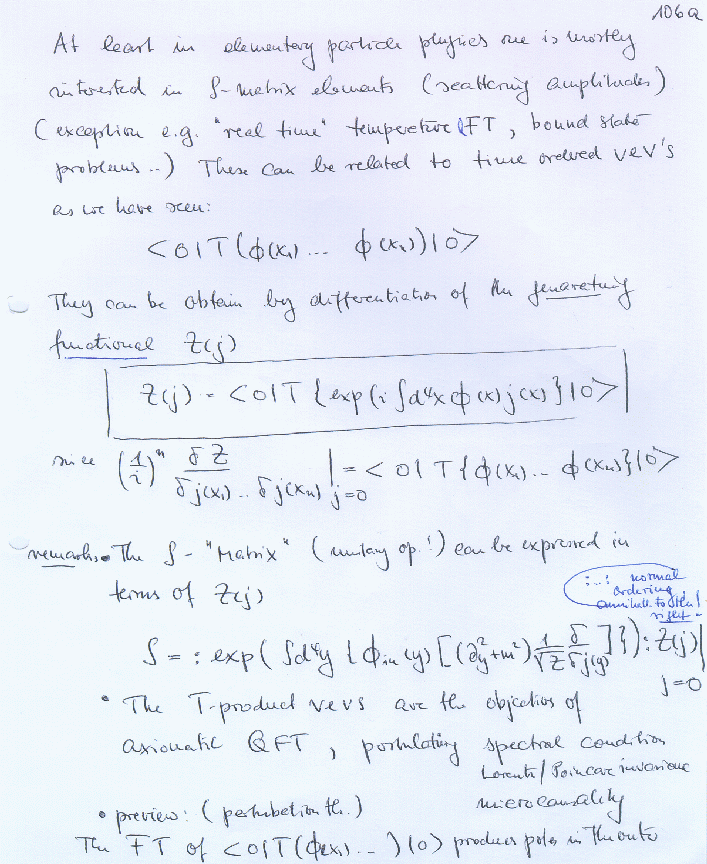 106a
At least in elementary particle physics one is mostly
interested in S-matrix elements (scattering amplitudes)
(exception e.g. "real time" temperature QFT, bound state
problems..) These can be related to time ordered vev's
as we have seen:
<0|T(ϕ(x₁)... ϕ(xₙ))|0>
They can be obtain by differentiation of the generating
functional Z(j)
Z(j) = <0|T{exp(i∫d⁴x ϕ(x)j(x)}|0>
since (1/i)ⁿ δZ/δj(x₁)..δj(xₙ)|j=0 = <0|T{ϕ(x₁)... ϕ(xₙ)}|0>
remarks • The S-"Matrix" (unitary op.!) can be expressed in
terms of Z(j)
:...: normal
ordering
annihil. to the
right
S = :exp(∫d⁴y {ϕin(y)[(∂²y+m²) 1/√Z δ/δj(y)]}): Z(j)|j=0
• The T-product vevs are the objectives of
axiomatic QFT, postulating spectral condition
Lorentz/Poincare invariance
microcausality
• preview: (perturbation th.)
The FT of <0|T(ϕ(x₁)...)|0> produces poles in